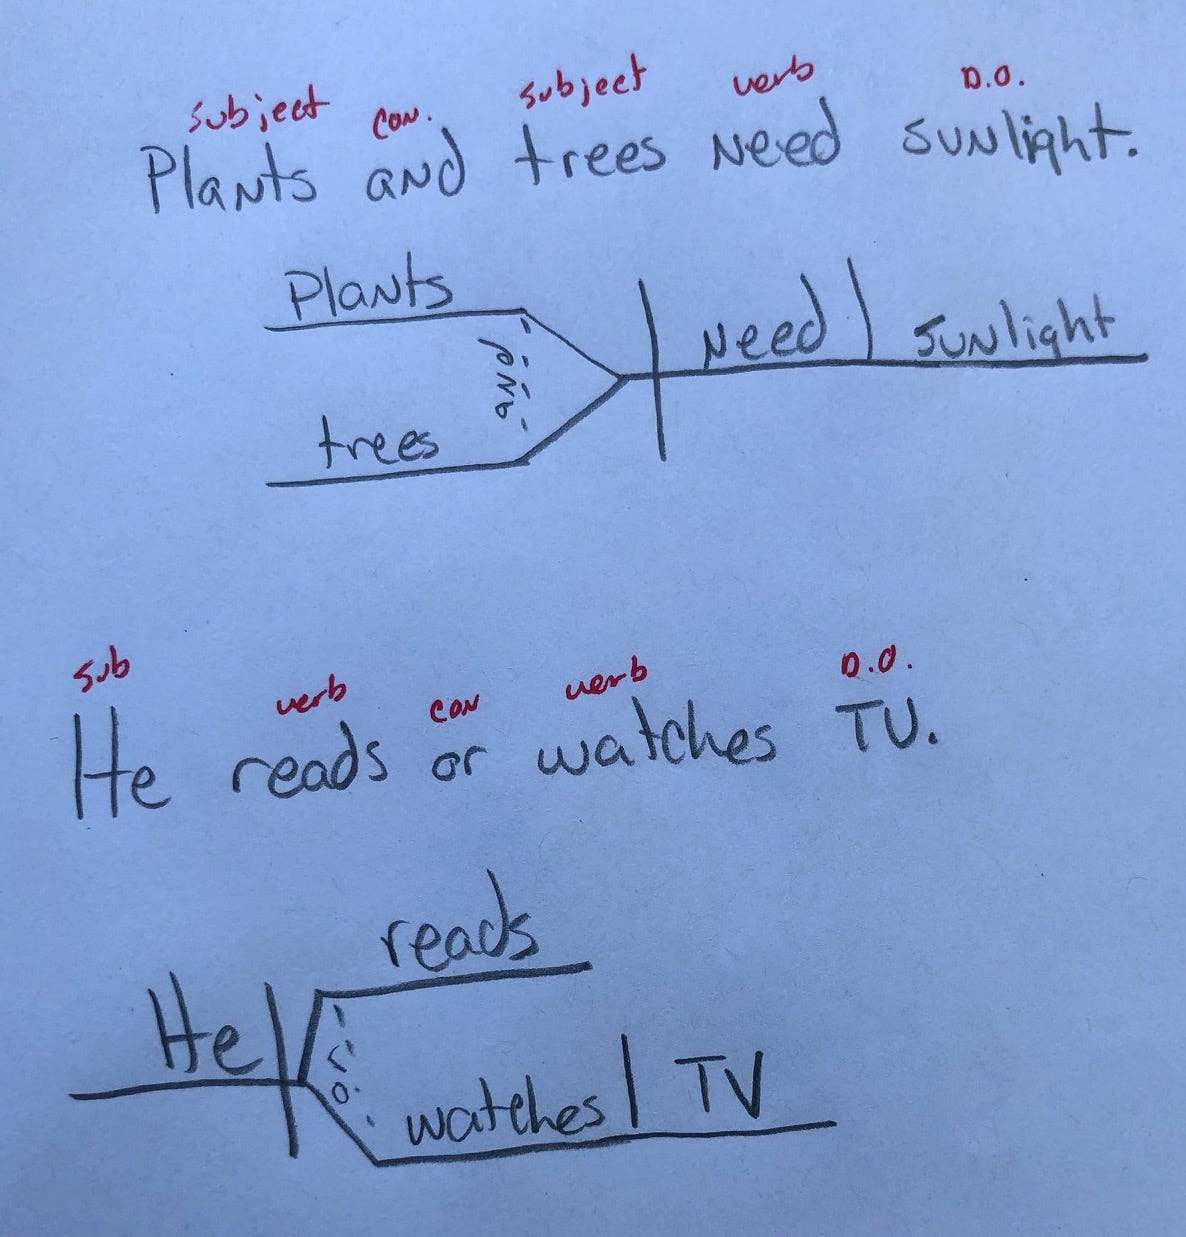 subject con. subject verb D.O.
Plants and trees need sunlight.
Plants
and
need sunlight
trees
sub verb con verb D.O.
He reads or watches TV.
reads
He
or
watches TV